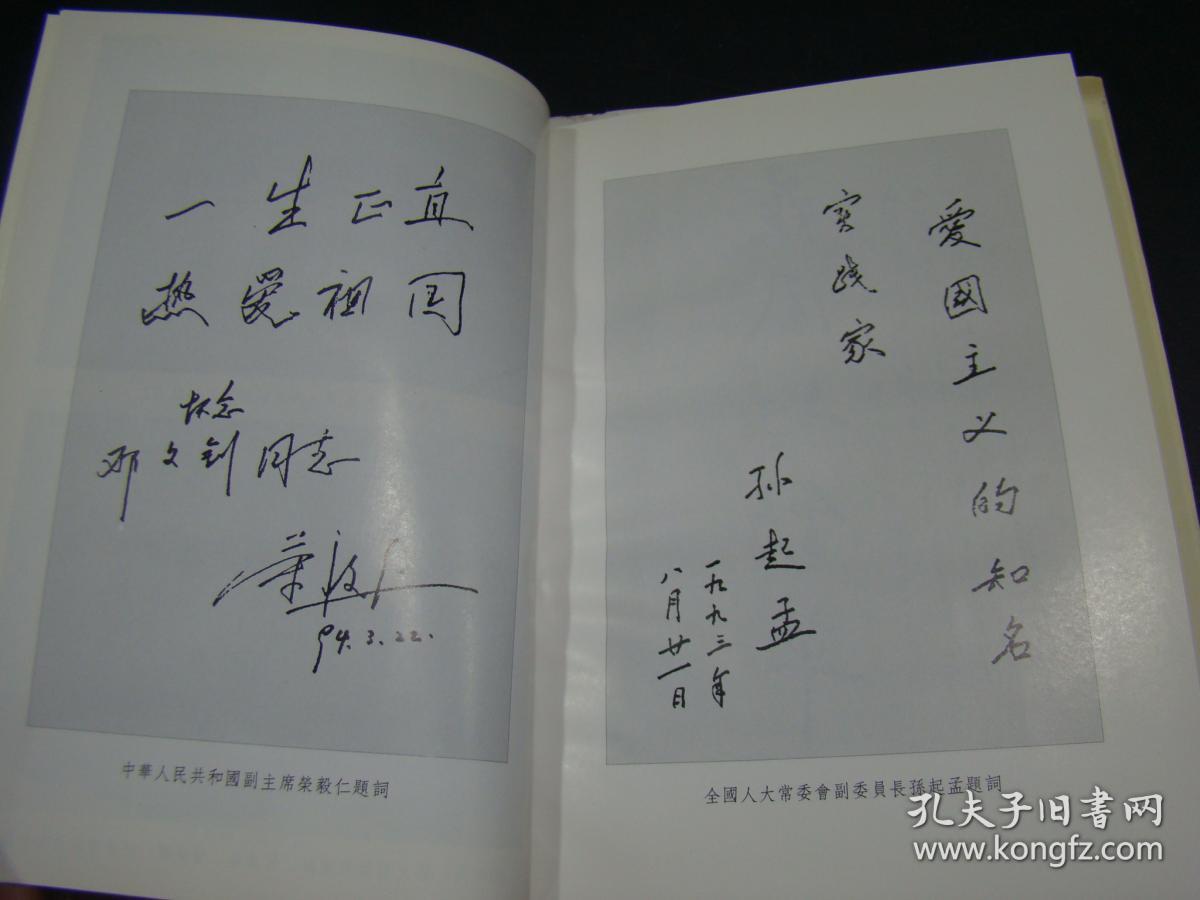 一生正直
热爱祖国
怀念
邓文钊同志
荣毅仁
94.3.22.
中華人民共和國副主席榮毅仁題詞
愛國主义的知名
实践家
孙起孟
一九九三年
八月廿一日
全國人大常委會副委員長孫起孟題詞
孔夫子旧书网
www.kongfz.com